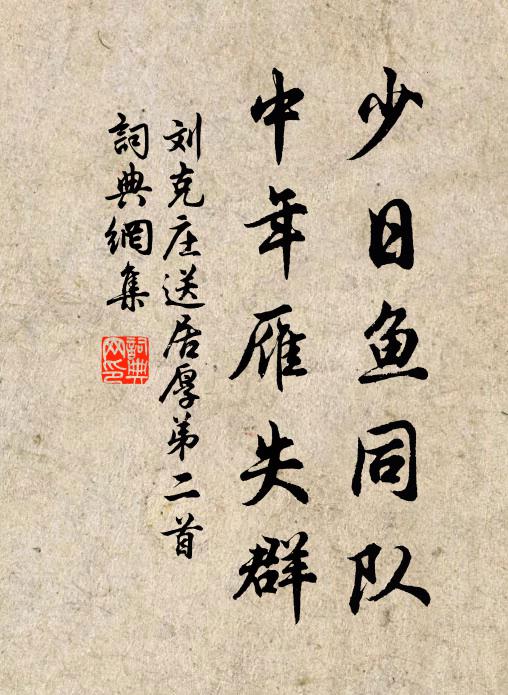 少日鱼同队
中年雁失群
刘克庄送居厚弟二首
詞典網集
詞典网印